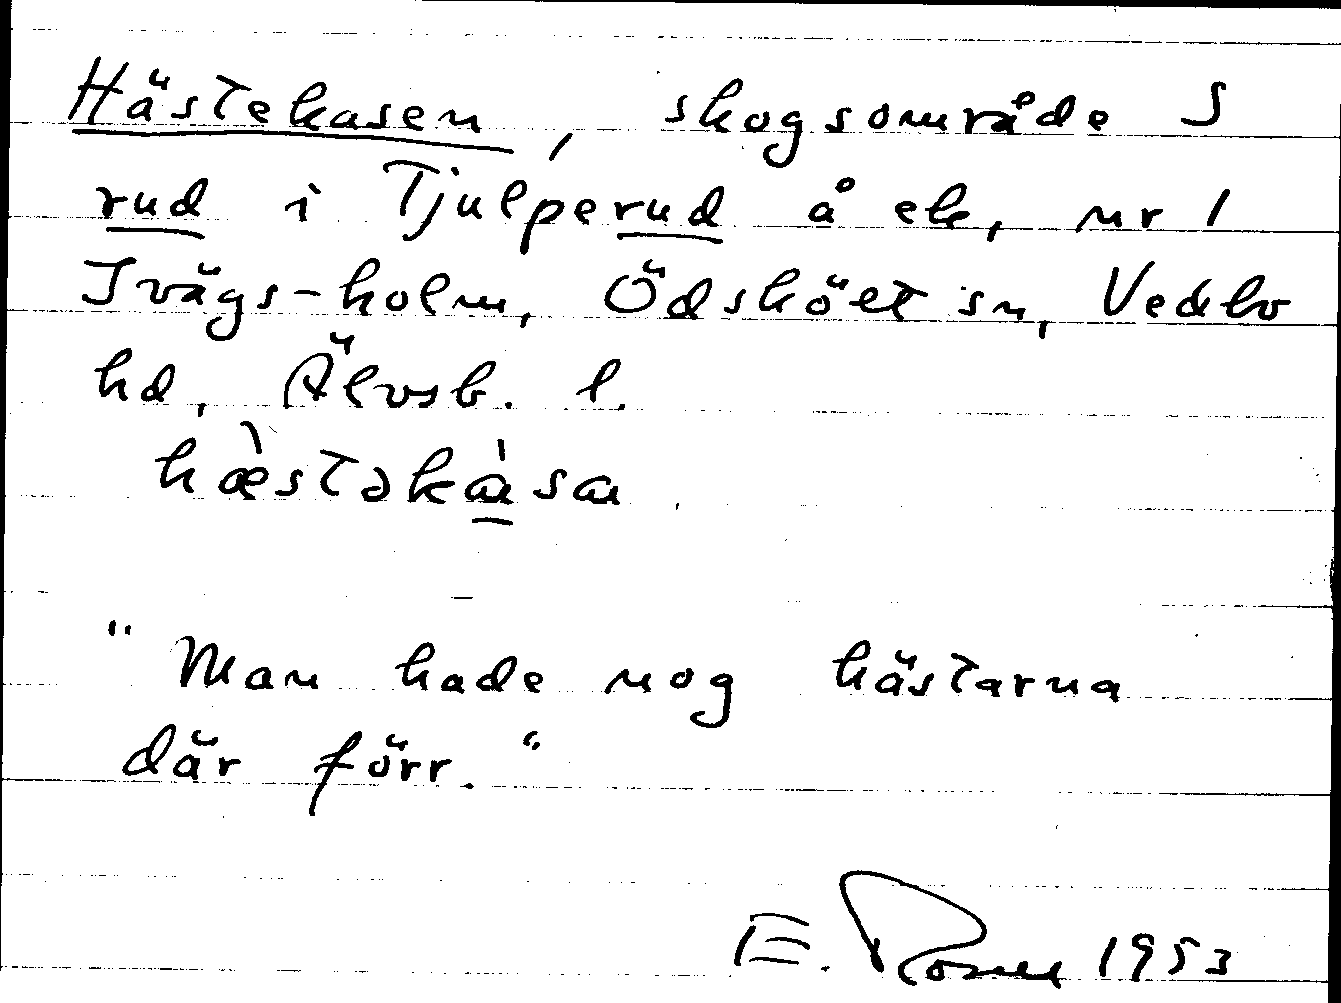 Hästekasen, skogsområde S
rud i Tjulperud å ek, nr 1
Tvägs-holm, Ödskölt sn, Vedbo
hd, Älvsb. l.
hæ̀stəkàsa
"Man hade nog hästarna
där förr."
E. 1953